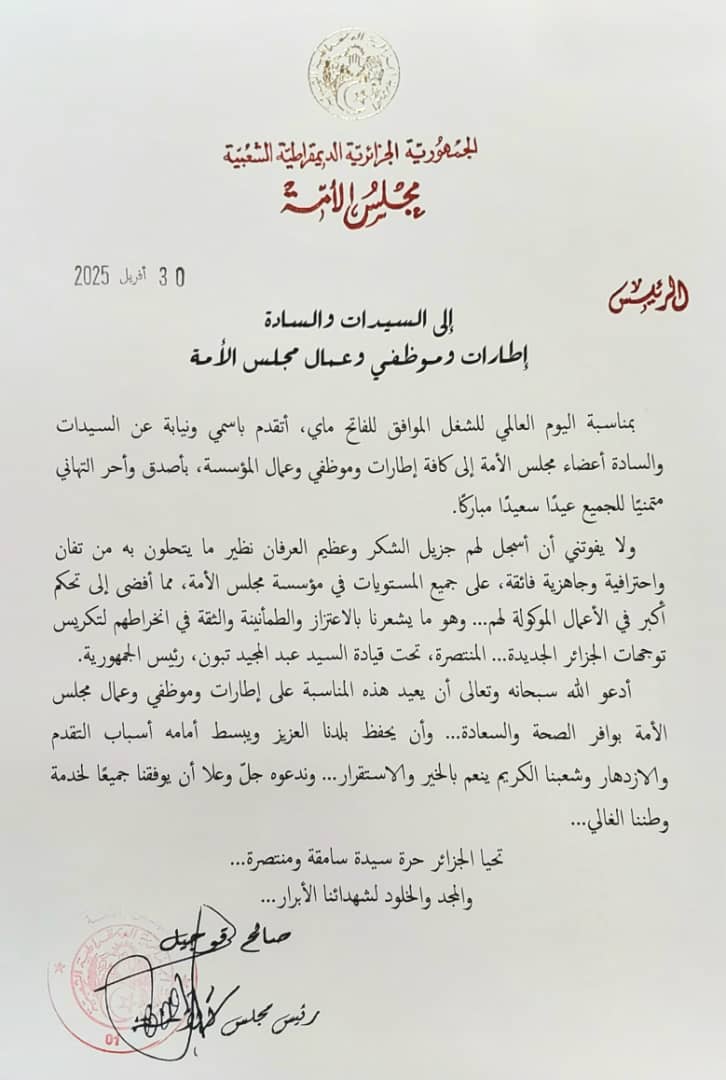 الجمهورية الجزائرية الديمقراطية الشعبية
مجلس الأمة
30 أفريل 2025
الرئيس
إلى السيدات والسادة
إطارات وموظفي وعمال مجلس الأمة
بمناسبة اليوم العالمي للشغل الموافق للفاتح ماي، أتقدم باسمي ونيابة عن السيدات
والسادة أعضاء مجلس الأمة إلى كافة إطارات وموظفي وعمال المؤسسة، بأصدق وأحر التهاني
متمنيًا للجميع عيدًا سعيدًا مباركًا.
ولا يفوتني أن أسجل لهم جزيل الشكر وعظيم العرفان نظير ما يتحلون به من تفان
واحترافية وجاهزية فائقة، على جميع المستويات في مؤسسة مجلس الأمة، مما أفضى إلى تحكم
أكبر في الأعمال الموكولة لهم... وهو ما يشعرنا بالاعتزاز والطمأنينة والثقة في انخراطهم لتكريس
توجهات الجزائر الجديدة... المنتصرة، تحت قيادة السيد عبد المجيد تبون، رئيس الجمهورية.
أدعو الله سبحانه وتعالى أن يعيد هذه المناسبة على إطارات وموظفي وعمال مجلس
الأمة بوافر الصحة والسعادة... وأن يحفظ بلدنا العزيز ويبسط أمامه أسباب التقدم
والازدهار وشعبنا الكريم ينعم بالخير والاستقرار... وندعوه جلّ وعلا أن يوفقنا جميعًا لخدمة
وطننا الغالي...
تحيا الجزائر حرة سيدة سامقة ومنتصرة...
والمجد والخلود لشهدائنا الأبرار...
صالح قوجيل
رئيس مجلس الأمة
01